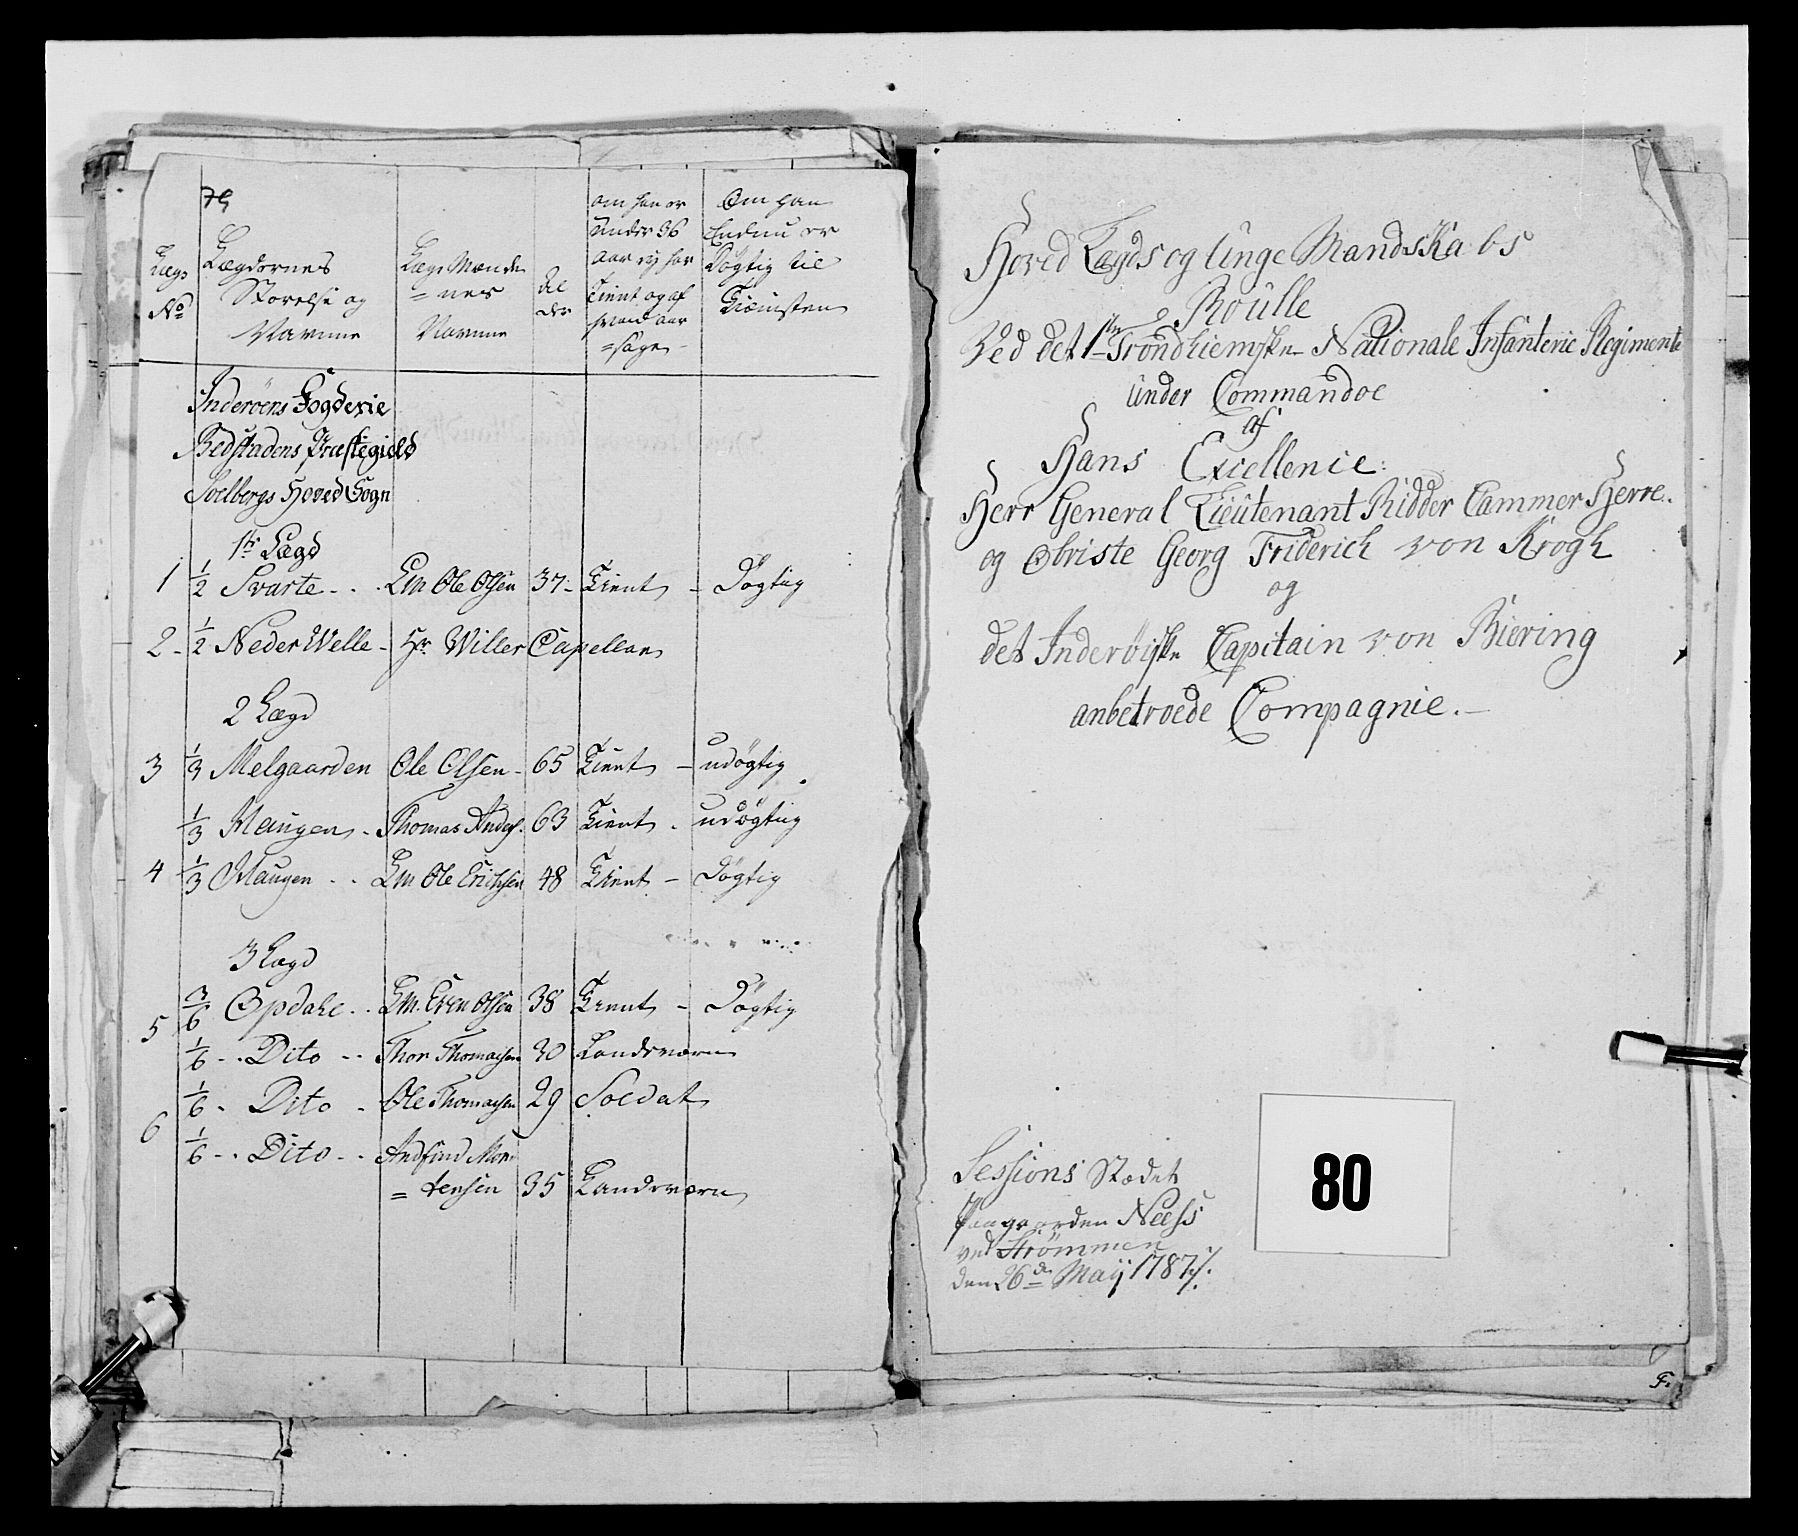 79
Lægs No
Lægdernes Størelse og Navnne
Lægs Mænde=nes Navnne
Al der
om han er under 36 aar ej har Tient og af hvad aar=sage
Om han Endnu er Døgtig til Tienisten
Inderöens Fogderie
Bedstadens Præstegield
Soelbergs Hoved Sogn
1ste Lægd
1 1/2 Svarte - . . Lm Ole Olsen 37 - Tient - Døgtig
2 - 1/2 Neder Welle - Hr. Willer Capellan
2 Lægd
3 1/3 Melgaarden Ole Olsen - 65 Tient - udøgtig
1/3 Haugen - Thomas Anders. 63 Tient . udøgtig
4 1/3 Haugen . . Lm Ole Erichsen 48 Tient - Døgtig
3 Lægd
5 3/6 Opdahl . . Lm. Even Olsen 38 Tient - Døgtig
1/6 - . Dito - - Thor Thomasen 30 Landværn
6 1/6 - Dito - Ole Thomasen 29 Soldat
1/6 - . Dito - . Andfind Mor
= tensen 35 Landværn
Hoved Lægds og unge Mandskabs
Roulle
Ved det 1ste Trondhiemske Nationale Infanterie Regimente
under Commandoe
af
Hans Excellence:
Herr General Lieutenant Ridder Cammer Herre.
og Obriste Georg Friderich von Krogh
og
det Inderöiske Capitain von Biering
anbetroede Compagnie. -
Sessions Stædet
paa gaarden Neess
ved Strømmen
den 26de Maij 1787 /.
80
F.